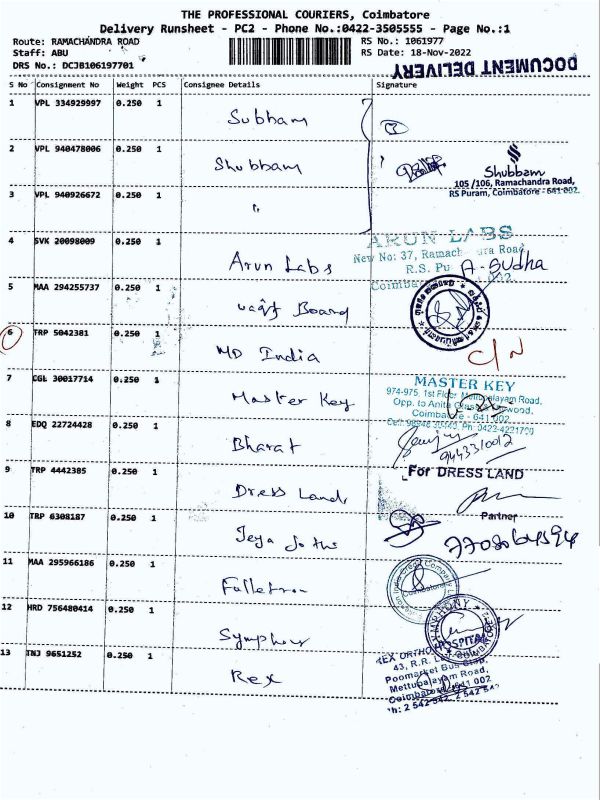 THE PROFESSIONAL COURIERS, Coimbatore
Delivery Runsheet - PC2 - Phone No.:0422-3505555 - Page No.:1
Route: RAMACHANDRA ROAD
RS No.: 1061977
Staff: ABU
RS Date: 18-Nov-2022
DRS No.: DCJB106197701
DOCUMENT DELIVERY
S No Consignment No Weight PCS Consignee Details Signature
1 VPL 334929997 0.250 1 Subham
2 VPL 940478006 0.250 1 Shubbam
Shubbam
105 /106, Ramachandra Road,
RS Puram, Coimbatore - 641 002.
3 VPL 940926672 0.250 1 "
4 SVK 20098009 0.250 1 Arun Labs
ARUN LABS
New No: 37, Ramach ra Road
R.S. Pu
Coimba 002
A - Sudha
5 MAA 294255737 0.250 1 Board
6 TRP 5042381 0.250 1 MD India
C/N
7 CGL 30017714 0.250 1 Master Key
MASTER KEY
974-975, 1st Floor, Mettupalayam Road,
Coimbatore - 641 002
8 EDQ 22724428 0.250 1 Bharat
9443310012
9 TRP 4442385 0.250 1 Dress Land
For DRESS LAND
Partner
10 TRP 6308187 0.250 1 Jeya Jothi
11 MAA 295966186 0.250 1 Fulletron
12 HRD 756480414 0.250 1 Symphony
13 TNJ 9651252 0.250 1 Rex
REX ORTHO HOSPITAL
43, R.R.
Poomarket Bus Stop,
Mettupalayam Road,
Coimbatore - 641 002
Ph: 2 542 542, 2 542 542